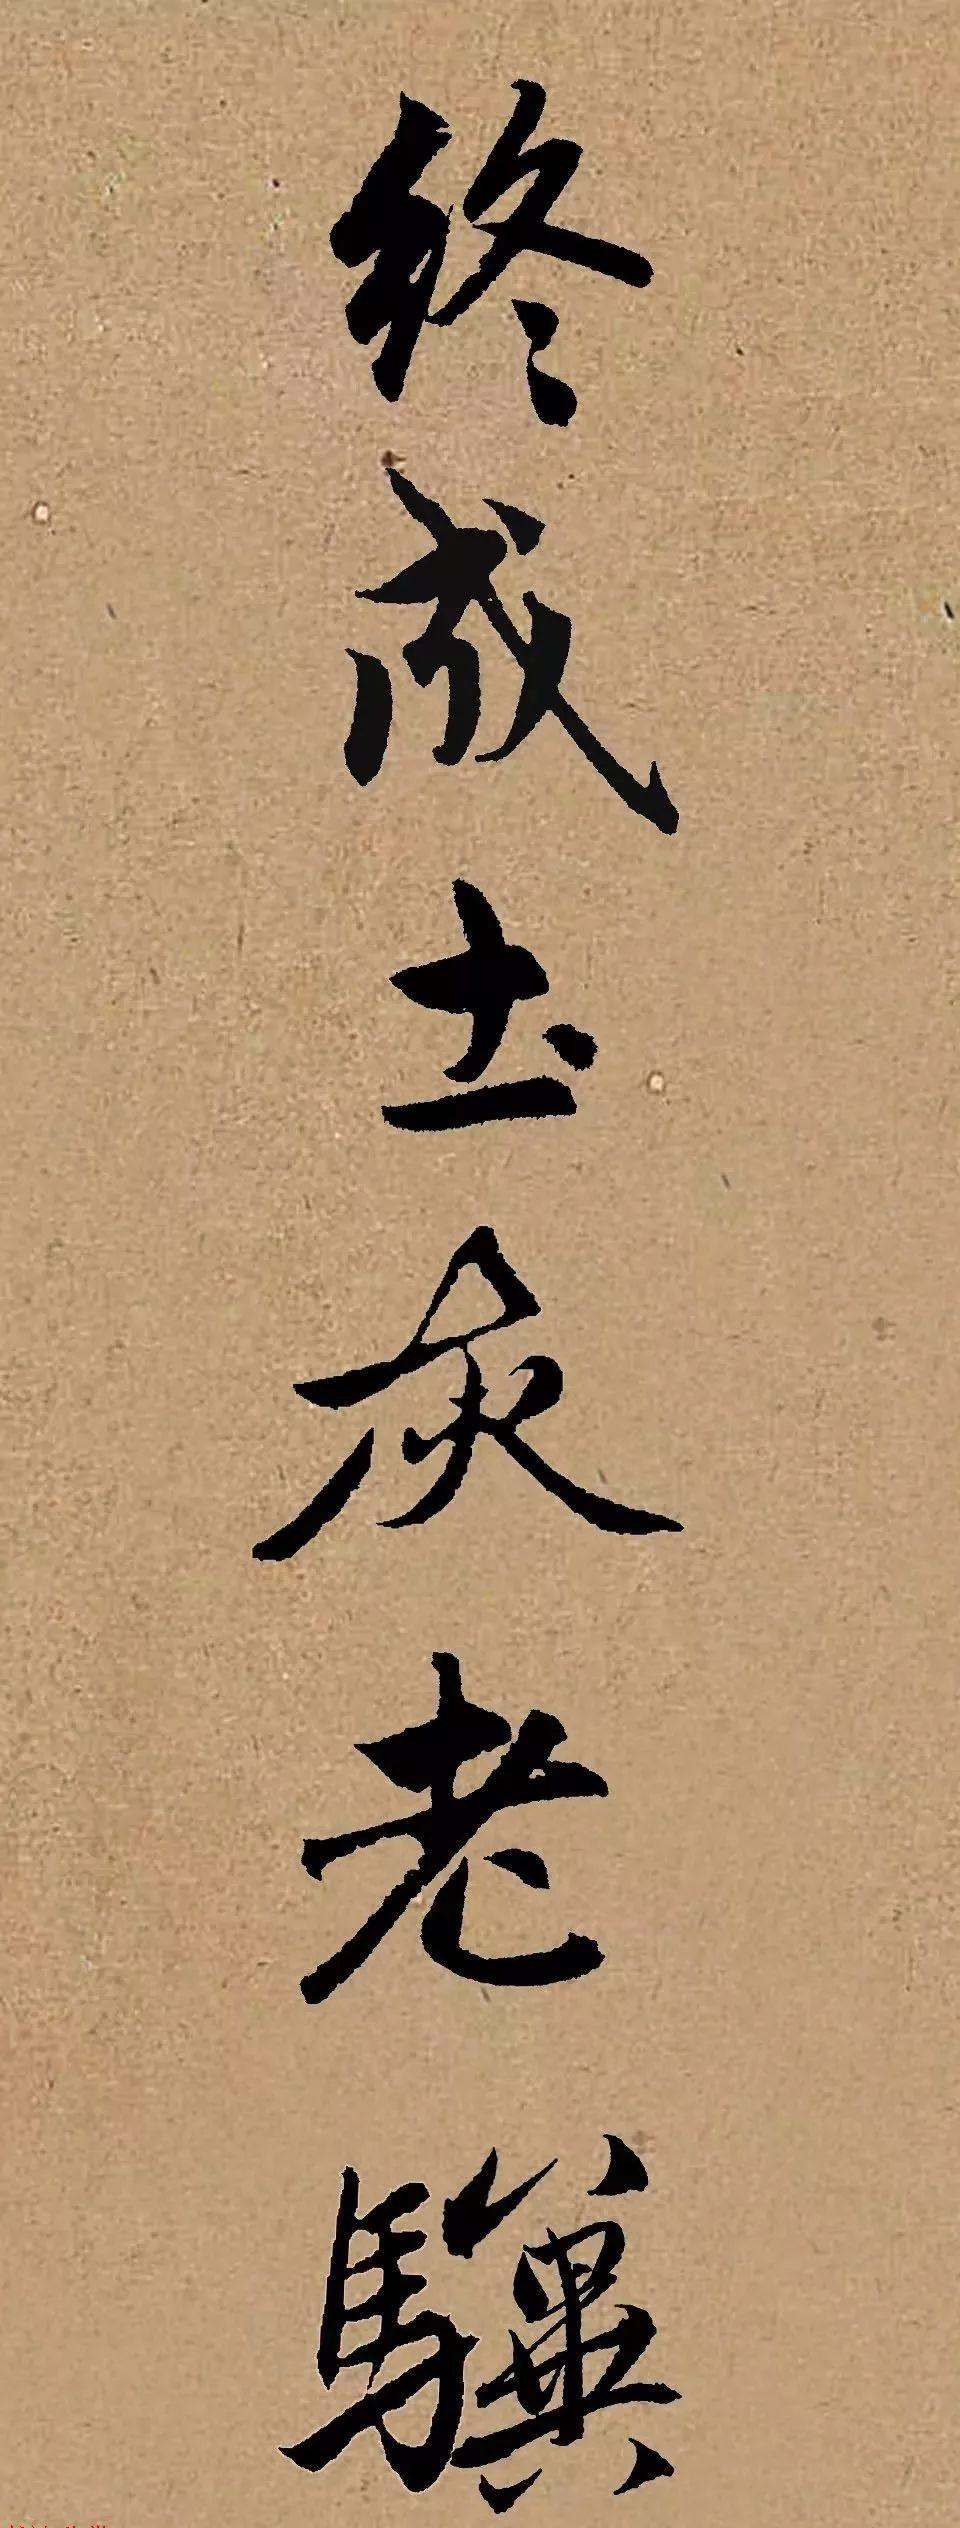 终成土灰老驥